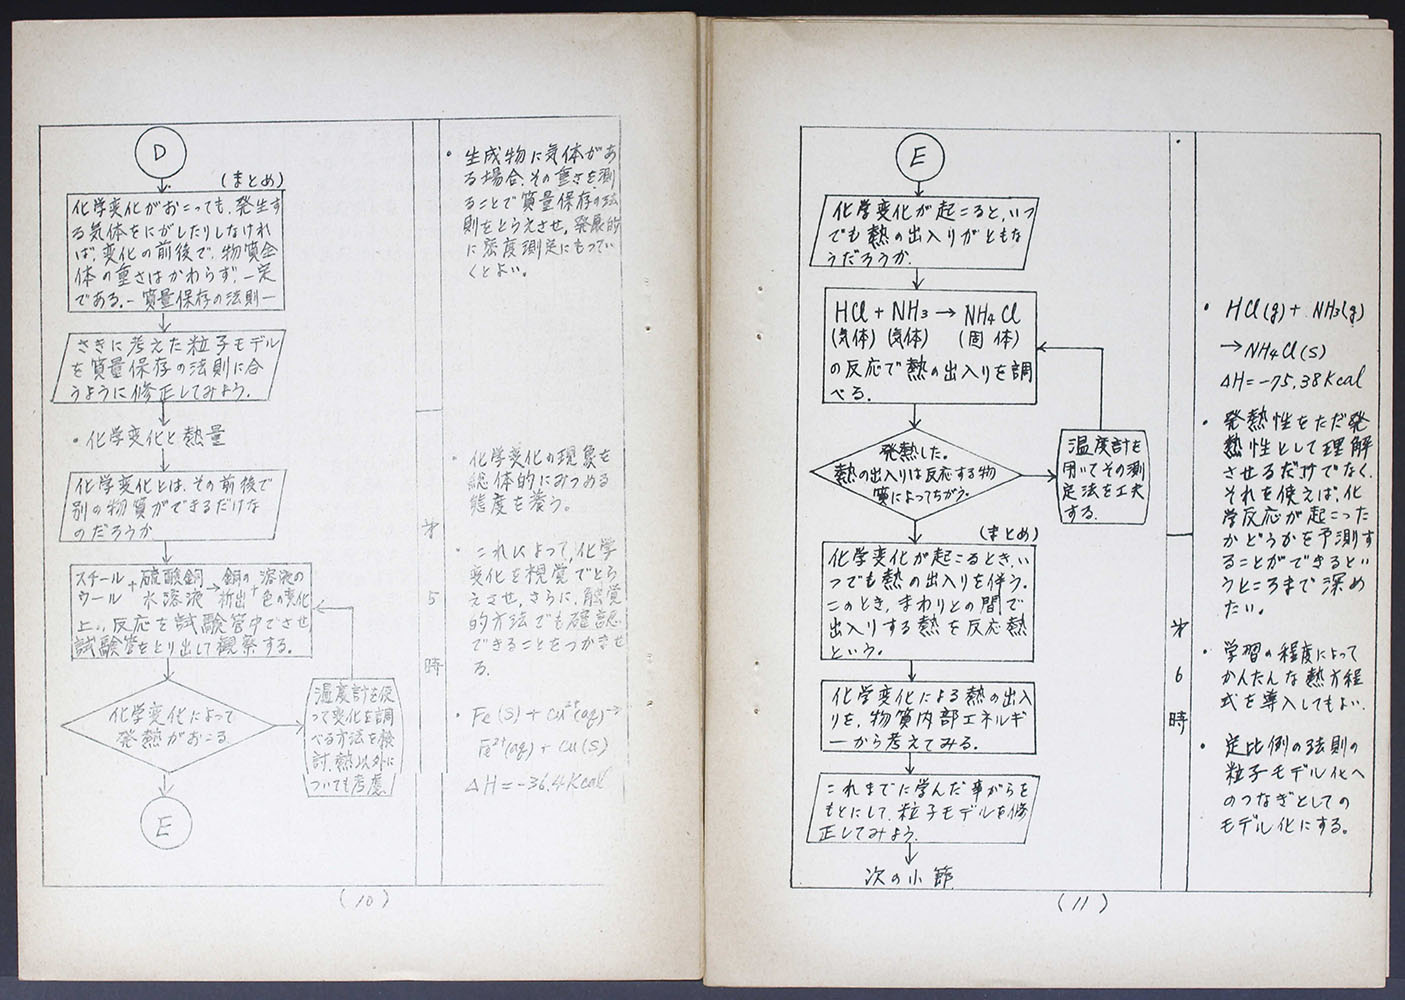 D
(まとめ)
化学変化がおこっても、発生す
る気体をにがしたりしなけれ
ば、変化の前後で、物質全
体の重さはかわらず、一定
である。－質量保存の法則－
さきに考えた粒子モデル
を質量保存の法則に合
うように修正してみよう。
・化学変化と熱量
化学変化とは、その前後で
別の物質ができるだけな
のだろうか
スチール＋硫酸銅→銅の＋溶液の
ウール　水溶液　析出　色の変化
上の反応を試験管中でさせ
試験管をとり出して観察する。
化学変化によって
発熱がおこる
温度計を使
って変化を調
べる方法を検
討、熱以外に
ついても考慮
E
才
5
時
・生成物に気体があ
る場合、その重さを測
ることで質量保存の法
則をとらえさせ、発展的
に密度測定にもってい
くとよい。
・化学変化の現象を
総体的におつめる
態度を養う。
・これによって、化学
変化を視覚でとら
えさせ、さらに、触覚
的方法でも確認
できることをつかませ
る。
・Fe(S)+Cu²⁺(aq)→
Fe²⁺(aq)+Cu(S)
ΔH=-36.4Kcal
(10)
E
化学変化が起こると、いつ
でも熱の出入りがともな
うだろうか
HCl+NH₃→NH₄Cl
(気体)(気体)　(固体)
の反応で熱の出入りを調
べる。
発熱した。
熱の出入りは反応する物
質によってちがう。
温度計を
用いてその測
定法を工夫
する。
(まとめ)
化学変化が起こるとき、い
つでも熱の出入りを伴う。
このとき、まわりとの間で
出入りする熱を反応熱
という。
化学変化による熱の出入
りを、物質内部エネルギ
ーから考えてみる。
これまでに学んだ事がらを
もとにして、粒子モデルを修
正してみよう
次の小節
才
6
時
・HCl(g)+NH₃(g)
→NH₄Cl(S)
ΔH=-75.38Kcal
・発熱性をただ発
熱性として理解
させるだけでなく、
それを使えば、化
学反応が起こった
かどうかを予測す
ることができるとい
うところまで深め
たい。
・学習の程度によって
かんたんな熱方程
式を導入してもよい。
・定比例の法則の
粒子モデル化へ
のつなぎとしての
モデル化にする。
(11)